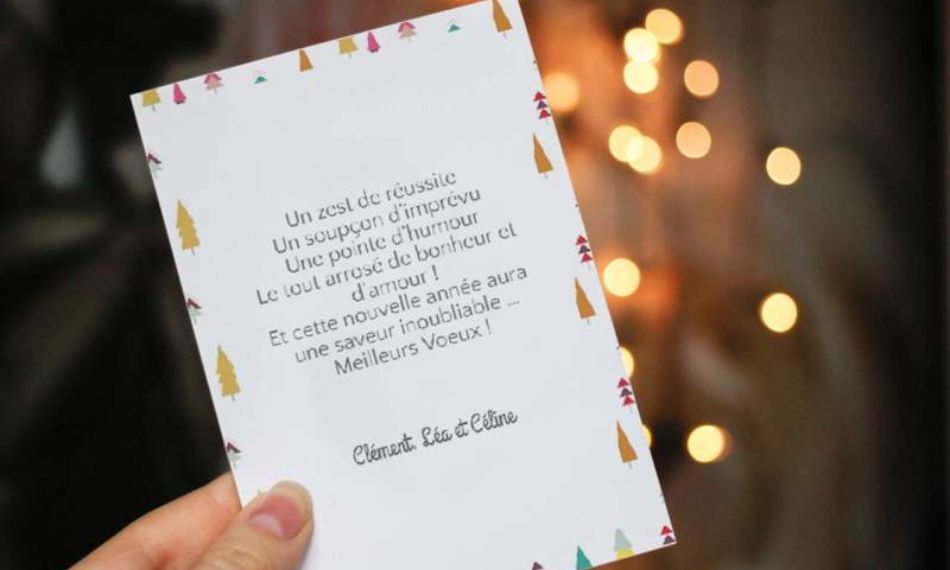 Un zest de réussite
Un soupçon d'imprévu
Une pointe d'humour
Le tout arrosé de bonheur et
d'amour !
Et cette nouvelle année aura
une saveur inoubliable ...
Meilleurs Voeux !
Clément, Léa et Céline